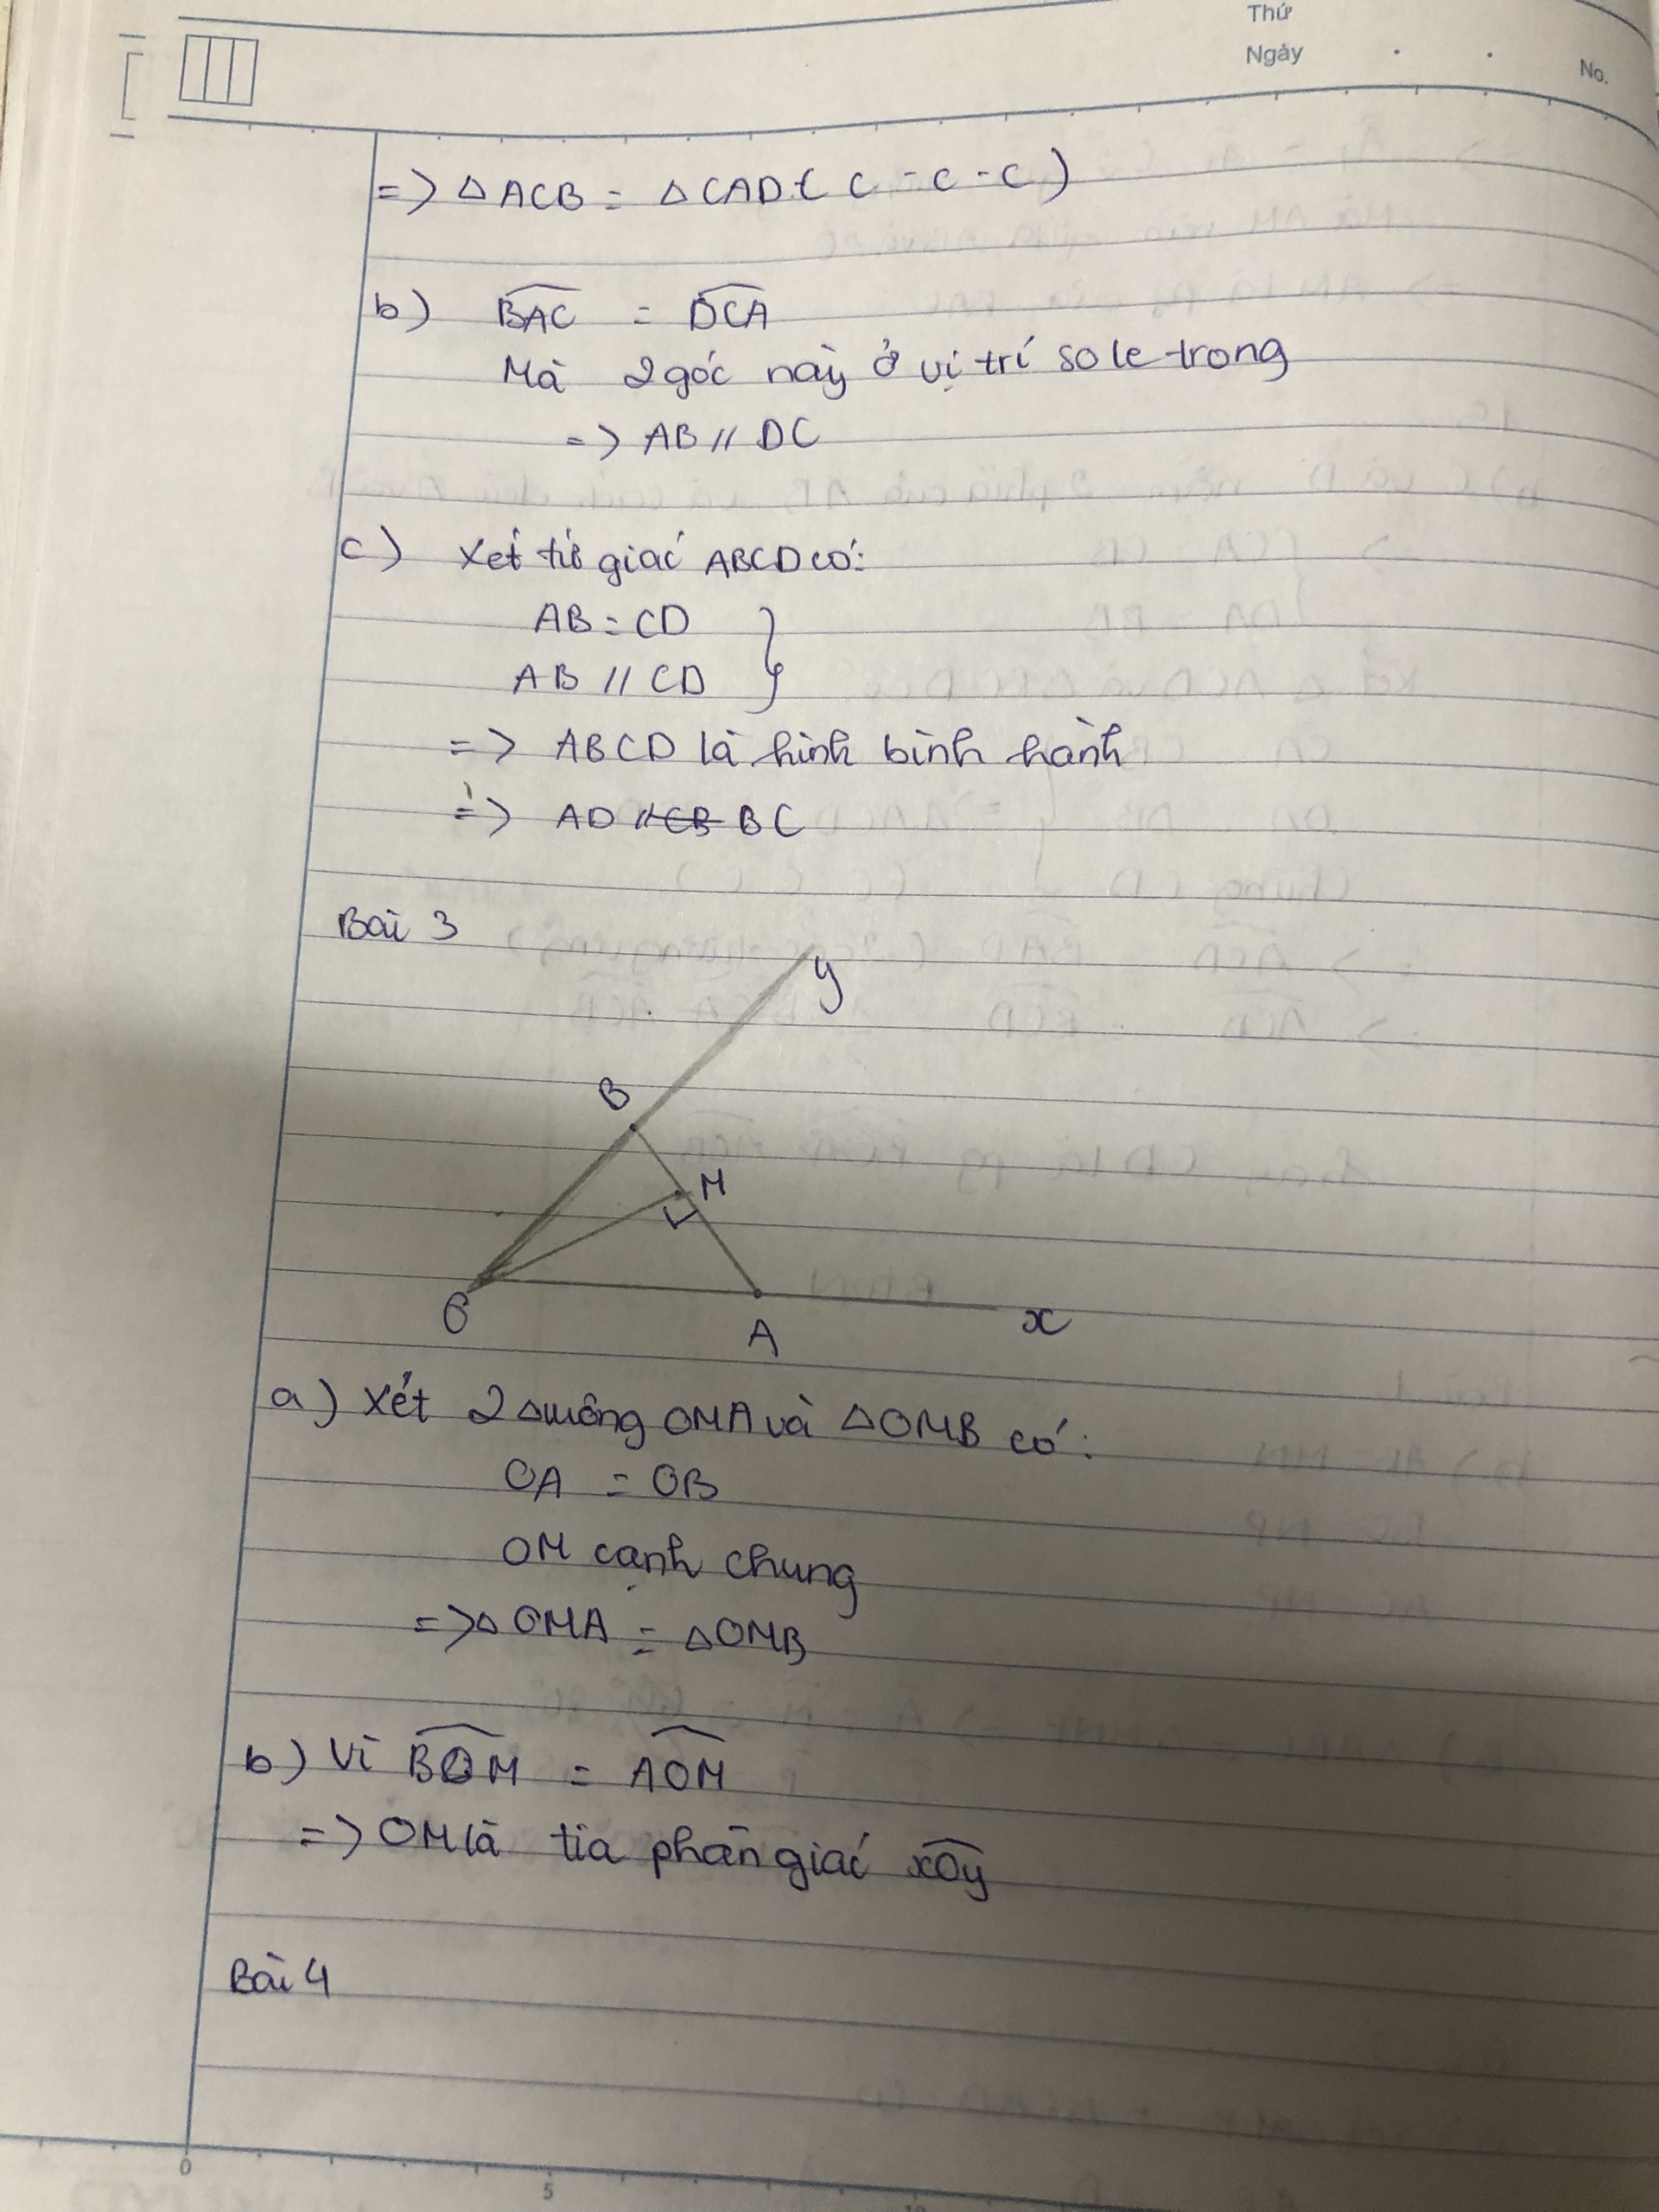 Thứ
Ngày
No.
=> △ACB = △CAD (c - c - c)
b) BAC = DCA
Mà 2 góc này ở vị trí so le trong
=> AB // DC
c) Xét tứ giác ABCD có:
AB = CD
AB // CD
=> ABCD là hình bình hành
=> AD // CB BC
Bài 3
y
B
M
O
A
x
a) Xét 2 △vuông OMA và △OMB có:
OA = OB
OM cạnh chung
=> △OMA = △OMB
b) Vì BOM = AOM
=> OM là tia phân giác xOy
Bài 4
0
5
10